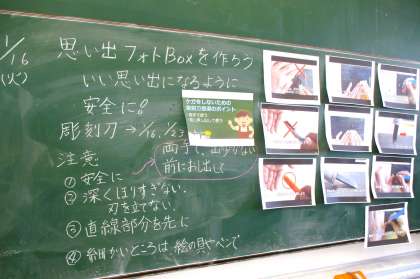 1/16
(火)
思い出フォトBoxを作ろう
いい思い出になるように
安全に!
彫刻刀→1/16, 1/23
両手で、
前にお出し
注意
①安全に
②深くほりすぎない。
刃を立てない。
③直線部分を先に
④細かいところは絵の具やペンで
ケガをしないための
彫刻刀指導のポイント